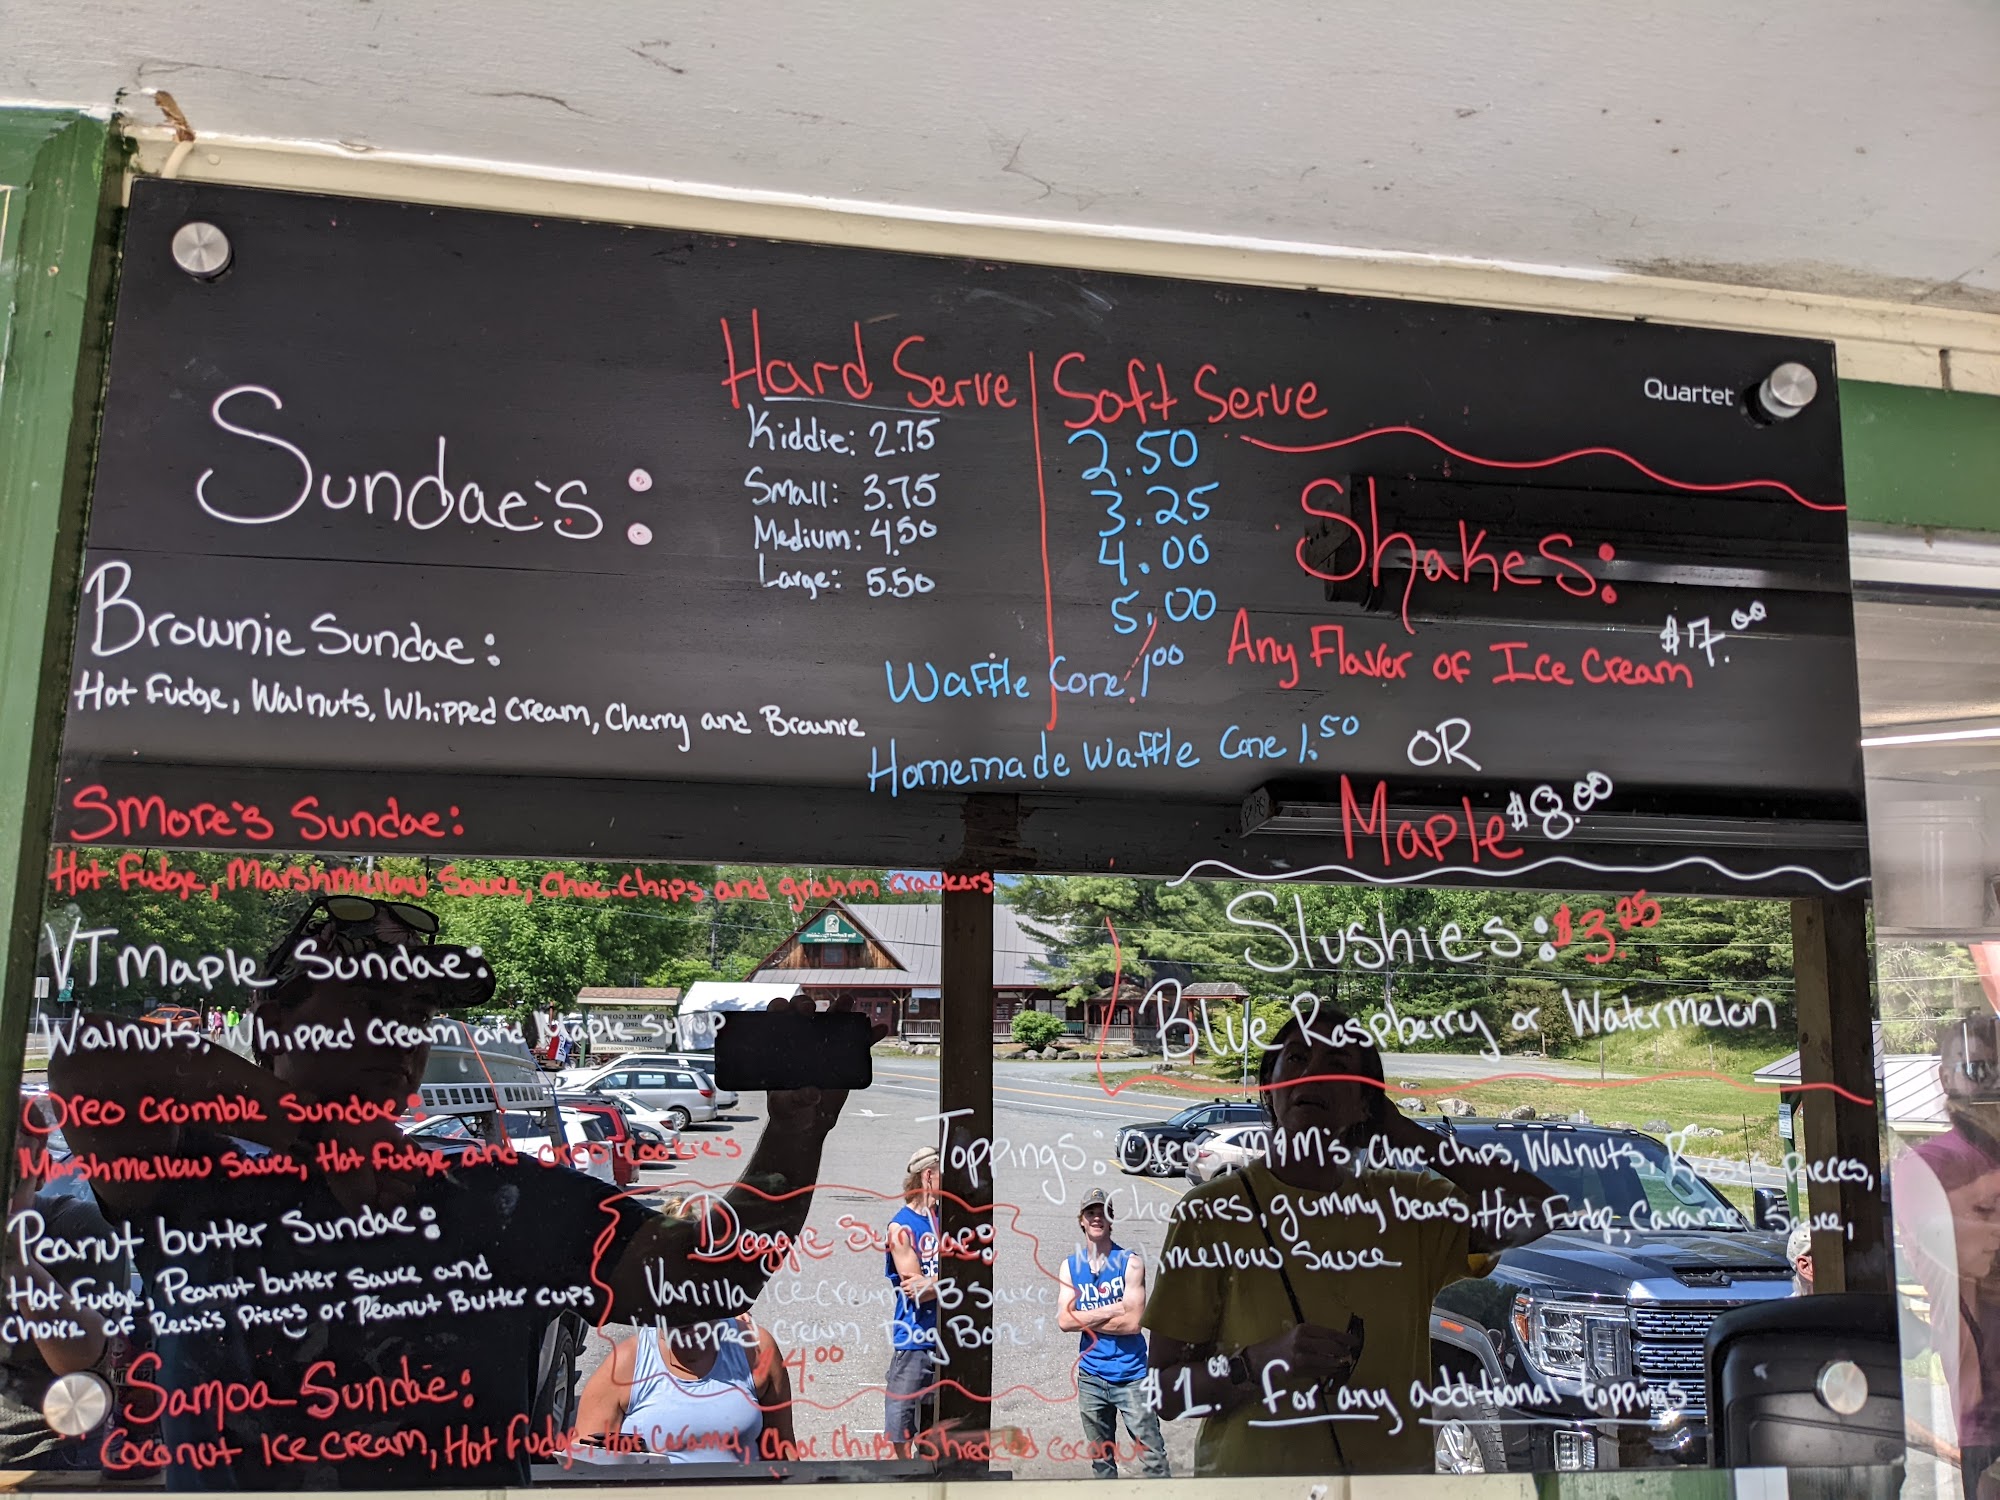 Quartet
Hard Serve | Soft Serve
Kiddie: 2.75 2.50
Small: 3.75 3.25
Medium: 4.50 4.00
Large: 5.50 5.00
Waffle Cone 1.00
Homemade Waffle Cone 1.50
Sundae's:
Brownie Sundae:
Hot Fudge, Walnuts, Whipped Cream, Cherry and Brownie
Smore's Sundae:
Hot Fudge, Marshmellow Sauce, Choc. Chips and grahm crackers
VT Maple Sundae:
Walnuts, Whipped Cream and Maple Syrup
Oreo Crumble Sundae:
Marshmellow Sauce, Hot Fudge and Oreo Cookie's
Peanut butter Sundae:
Hot Fudge, Peanut butter Sauce and
Choice of Reese's Pieces or Peanut Butter Cups
Samoa Sundae:
Coconut Ice Cream, Hot Fudge, Hot Caramel, Choc. Chips & Shredded Coconut
Doggie Sundae:
Vanilla Ice Cream, PB Sauce
Whipped Cream, Dog Bone
4.00
Shakes:
Any Flavor of Ice Cream $7.00
OR
Maple $8.00
Slushies: $3.25
Blue Raspberry or Watermelon
Toppings: Oreo, M&M's, Choc. Chips, Walnuts, Reese's Pieces,
Cherries, gummy bears, Hot Fudge, Caramel Sauce,
Marshmellow Sauce
$1.00 For any additional toppings